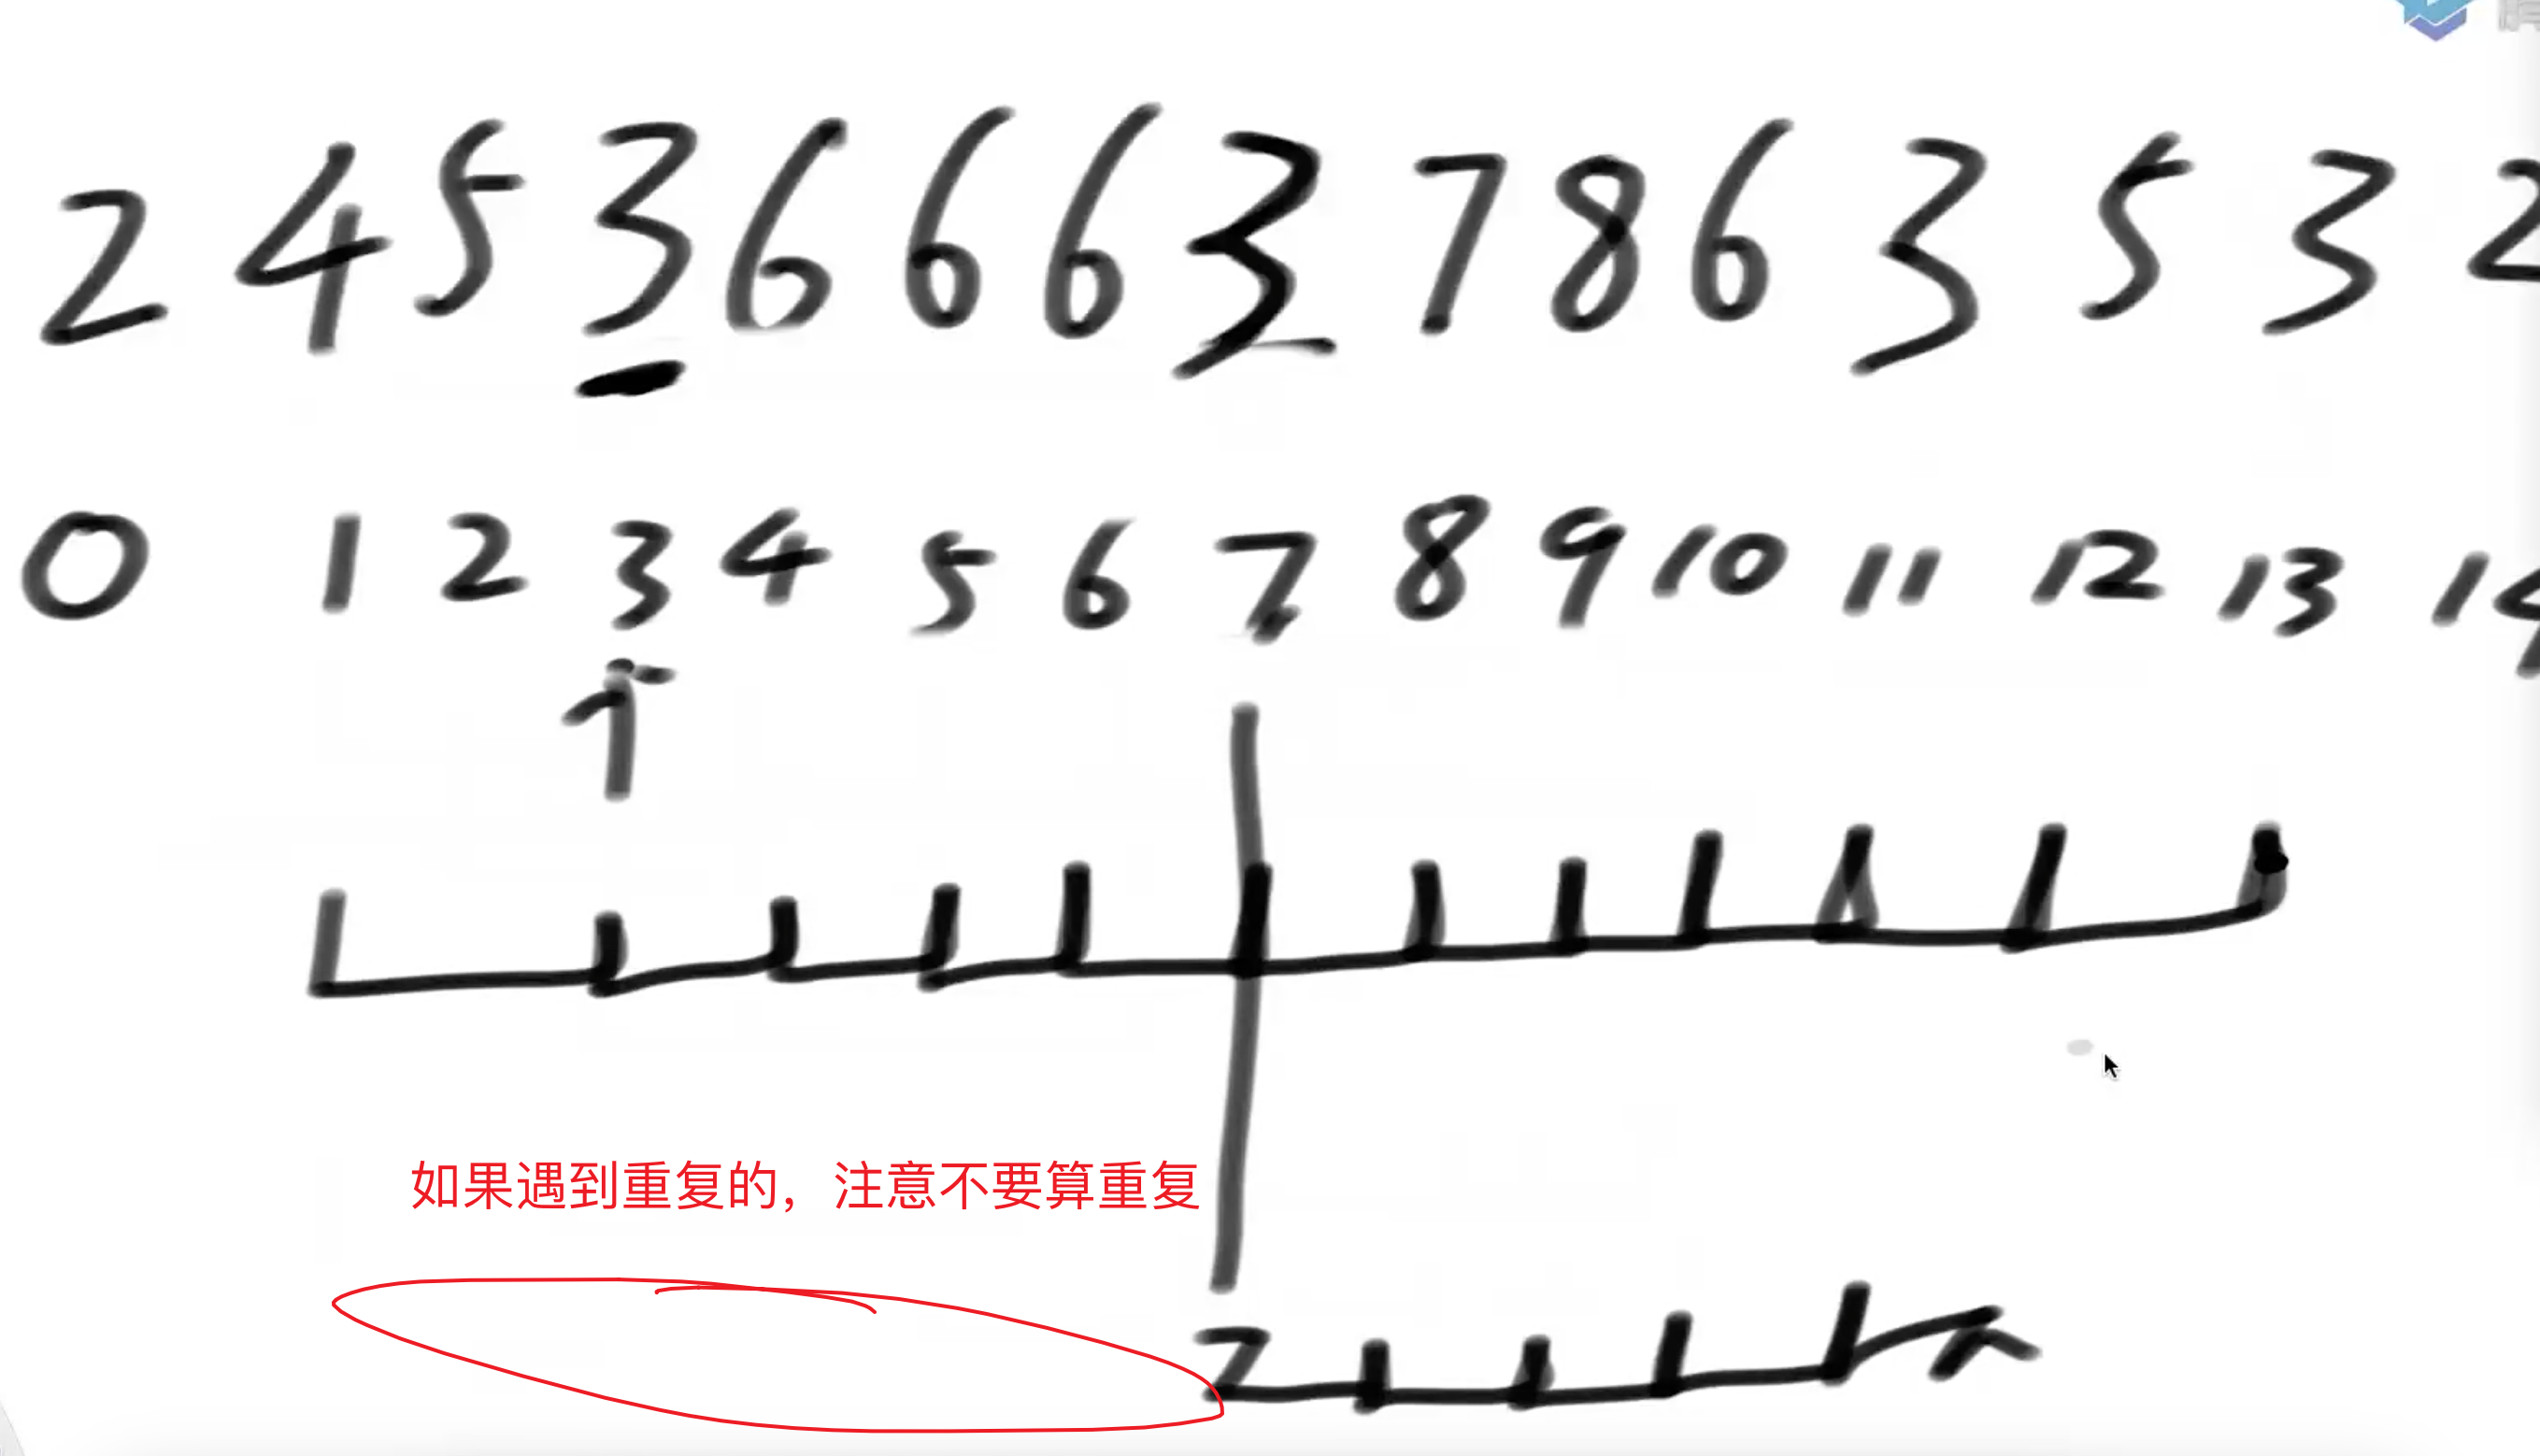 2 4 5 3 6 6 6 3 7 8 6 3 5 3 2
0 1 2 3 4 5 6 7 8 9 10 11 12 13 14
如果遇到重复的，注意不要算重复
7